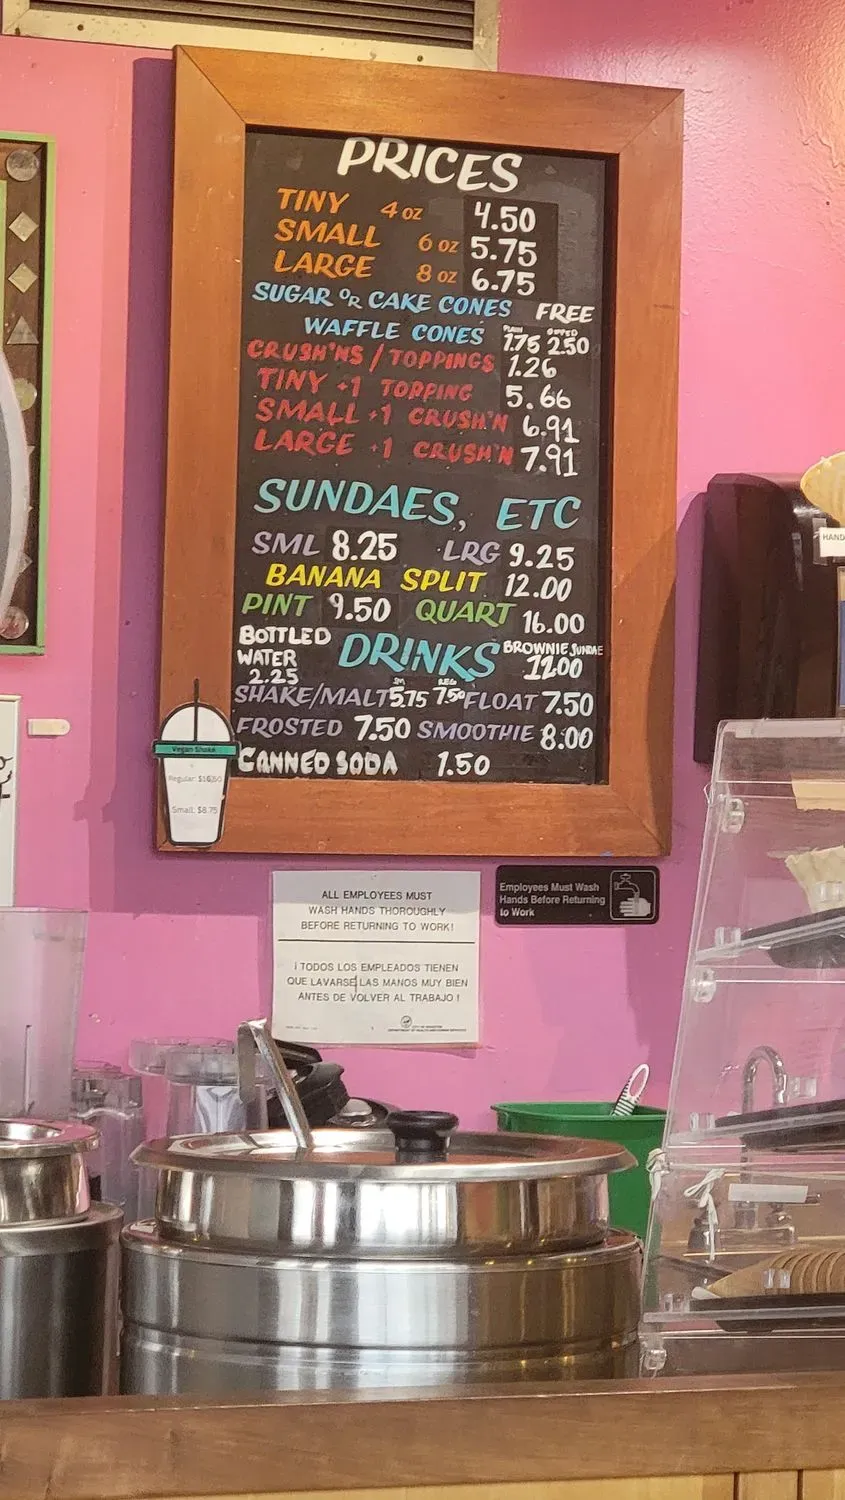 PRICES
TINY 4 oz 4.50
SMALL 6 oz 5.75
LARGE 8 oz 6.75
SUGAR OR CAKE CONES FREE
PLAIN DIPPED
WAFFLE CONES 1.75 2.50
CRUSH'NS / TOPPINGS 1.26
TINY +1 TOPPING 5.66
SMALL +1 CRUSH'N 6.91
LARGE +1 CRUSH'N 7.91
SUNDAES, ETC
SML 8.25 LRG 9.25
BANANA SPLIT 12.00
PINT 9.50 QUART 16.00
BOTTLED
WATER
2.25
DRINKS
BROWNIE SUNDAE
12.00
SM REG
SHAKE/MALT 5.75 7.50 FLOAT 7.50
FROSTED 7.50 SMOOTHIE 8.00
CANNED SODA 1.50
Vegan Shake
Regular: $10.50
Small: $8.75
ALL EMPLOYEES MUST
WASH HANDS THOROUGHLY
BEFORE RETURNING TO WORK!
¡ TODOS LOS EMPLEADOS TIENEN
QUE LAVARSE LAS MANOS MUY BIEN
ANTES DE VOLVER AL TRABAJO !
Employees Must Wash
Hands Before Returning
to Work
HAND